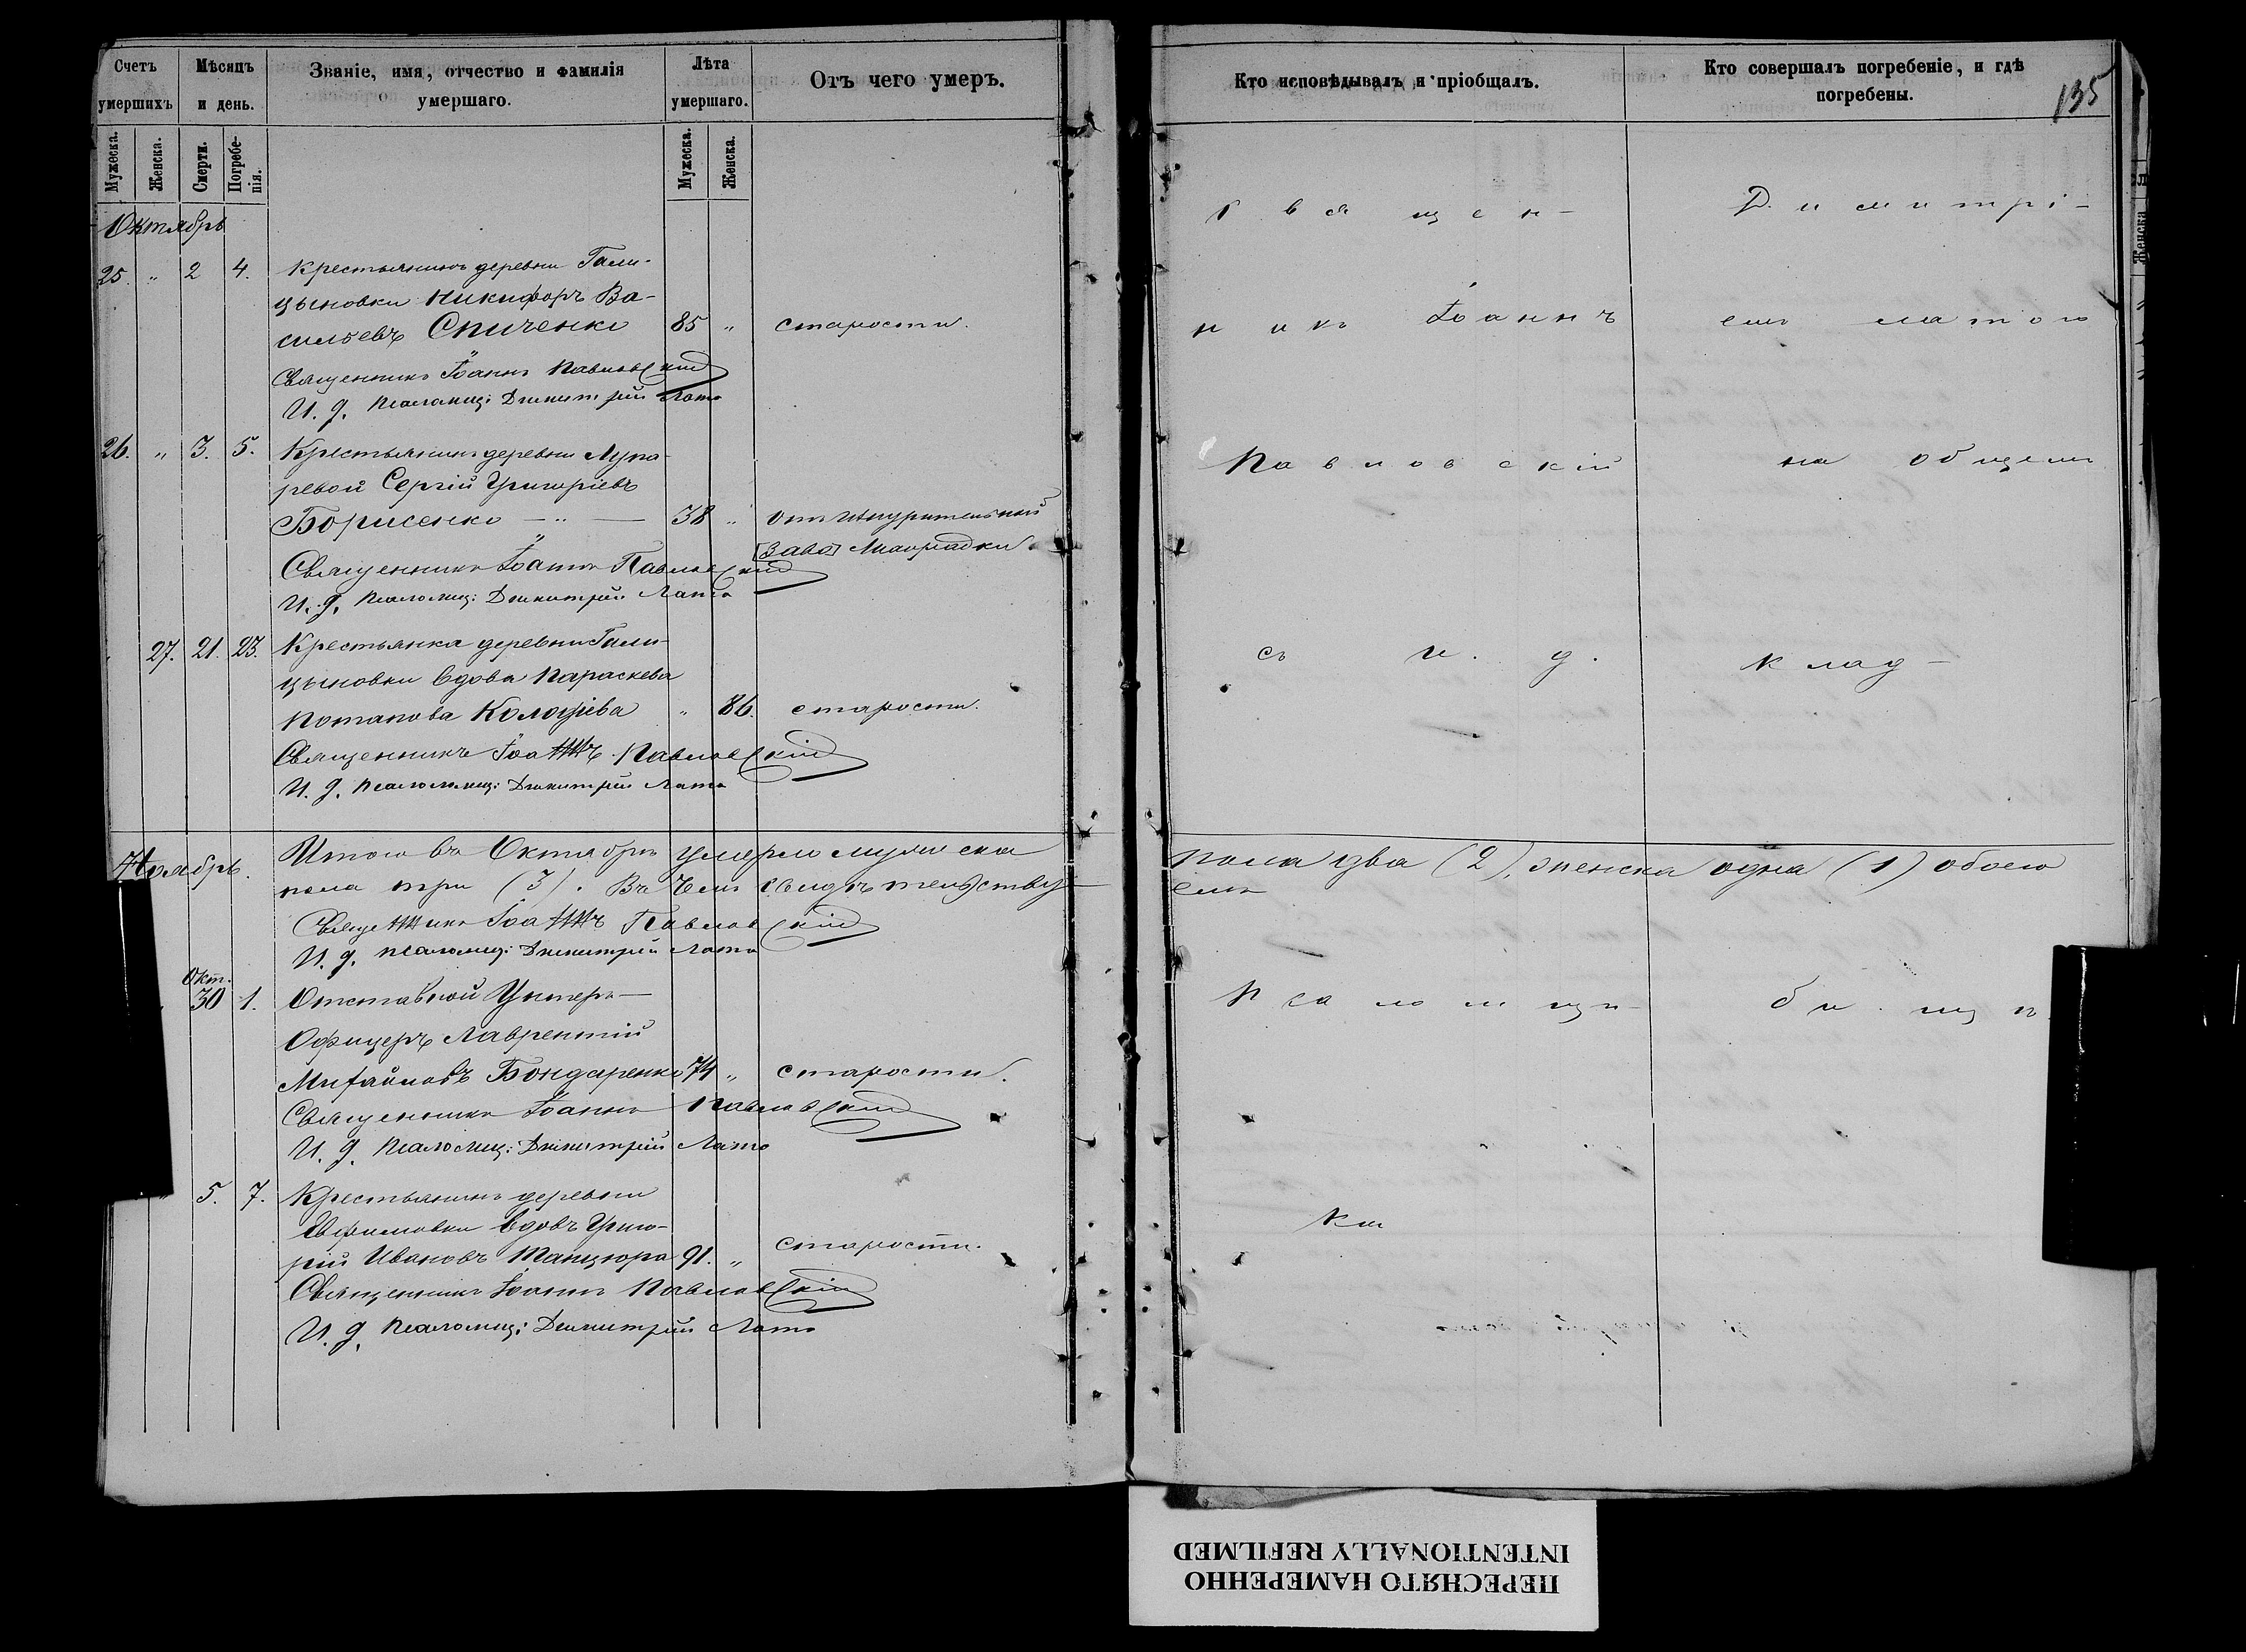 Счетъ умершихъ
Мѣсяцъ и день.
Званіе, имя, отчество и фамилія
умершаго.
Лѣта умершаго.
Отъ чего умеръ.
Кто исповѣдывалъ и пріобщалъ.
Кто совершалъ погребеніе, и гдѣ
погребены.
135
Мужеска.
Женска.
Смерти.
Погребенія.
Мужеска.
Женска.
Октябрь
25. " 2 4. Крестьянинъ деревни Гали-
цыновки Никифоръ Ва-
сильевъ Спиченко 85 " старости.
Священникъ Іоаннъ Павловскій
И. д. Псаломщ: Димитрій Лато
26. " 3. 5. Крестьянинъ деревни Лупа-
ревой Сергій Григоріевъ
Борисенко — " — 38 " отъ
лихорадки.
Священникъ Іоаннъ Павловскій
И. д. Псаломщ: Димитрій Лато
27. 21. 23. Крестьянка деревни Гали-
цыновки вдова Параскева
Потапова " 86. старости.
Священникъ Іоаннъ Павловскій
И. д. Псаломщ: Димитрій Лато
Ноябрь.
Итого въ Октябрѣ умерло мужеска
пола два (2), женска одна (1) обоего
пола три (3). Въ чемъ свидѣтельству-
емъ
Священникъ Іоаннъ Павловскій
И. д. Псаломщ: Димитрій Лато
Окт.
30 1. Отставной Унтеръ—
Офицеръ Лаврентій
Михайловъ Бондаренко 74 " старости.
Священникъ Іоаннъ Павловскій
И. д. Псаломщ: Димитрій Лато
5. 7. Крестьянинъ деревни
Ефимовки вдовъ Григо-
рій Ивановъ Танцюра 91. " старости.
Священникъ Іоаннъ Павловскій
И. д. Псаломщ: Димитрій Лато
Священ-
никъ Іоаннъ
Павловскій
съ и. д.
Псаломщи-
Димитрі-
емъ Латою
на общемъ
клад-
бищѣ.
Женска
ПЕРЕСНЯТО НАМЕРЕННО
INTENTIONALLY REFILMED